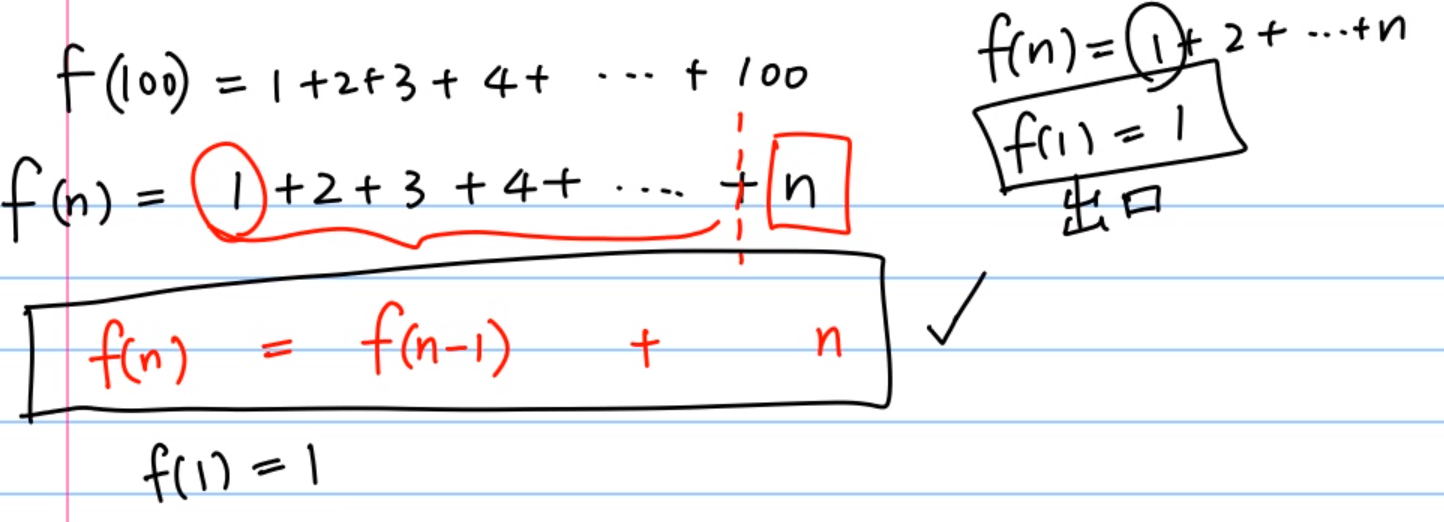 f(100) = 1+2+3+4+ ... + 100
f(n) = 1+2+3+4+ .... + n
f(n) = f(n-1) + n
f(1) = 1
f(n) = 1+2+...+n
f(1) = 1
出口